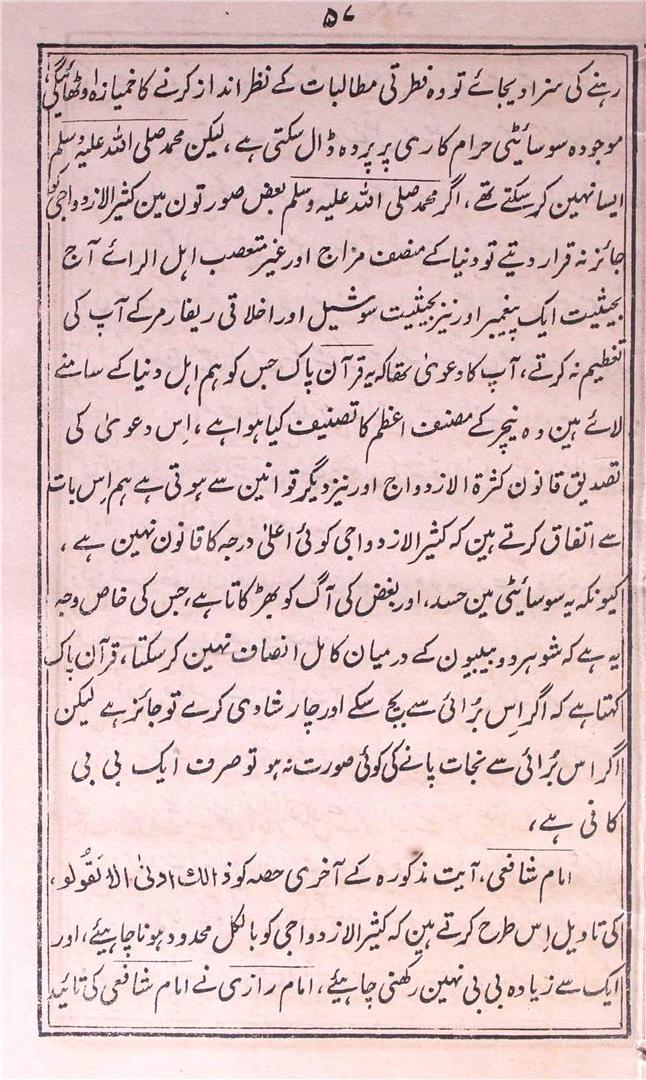 ۵۷
رہنے کی سزا دیجائے تو وہ فطرتی مطالبات کے نظر انداز کرنے کا خمیازہ اوٹھائیگی
موجودہ سوسائیٹی حرام کاری پر پردہ ڈال سکتی ہے، لیکن محمد صلی اللہ علیہ وسلم
ایسا نہین کر سکتے تھے، اگر محمد صلی اللہ علیہ وسلم بعض صورتون مین کثیر الازدواجی کو
جائز نہ قرار دیتے تو دنیا کے منصف مزاج اور غیر متعصب اہل الرائے آج
بحیثیت ایک پیغمبر اور نیز بحیثیت سوشیل اور اخلاقی ریفارمر کے آپ کی
تعظیم نہ کرتے، آپ کا دعویٰ تھا کہ یہ قرآن پاک جس کو ہم اہل دنیا کے سامنے
لائے ہین وہ نیچر کے مصنف اعظم کا تصنیف کیا ہوا ہے، اِس دعویٰ کی
تصدیق قانون کثرۃ الازدواج اور نیز دیگر قوانین سے ہوتی ہے ہم اِس بات
سے اتفاق کرتے ہین کہ کثیر الازدواجی کوئی اعلیٰ درجہ کا قانون نہین ہے،
کیونکہ یہ سوسائیٹی مین حسد، اور بغض کی آگ کو بھڑکاتا ہے، جس کی خاص وجہ
یہ ہے کہ شوہر دو بیبیون کے درمیان کامل انصاف نہین کر سکتا، قرآن پاک
کہتا ہے کہ اگر اِس بُرائی سے بچ سکے اور چار شادی کرے تو جائز ہے لیکن
اگر اس بُرائی سے نجات پانے کی کوئی صورت نہ ہو تو صرف ایک بی بی
کافی ہے،
امام شافعی، آیت مذکورہ کے آخری حصہ کو ذالك ادنیٰ الا تَقُولو،
کی تاویل اِس طرح کرتے ہین کہ کثیر الازدواجی کو بالکل محدود ہونا چاہیئے، اور
ایک سے زیادہ بی بی نہین رکھنی چاہیئے، امام رازی نے امام شافعی کی تائید